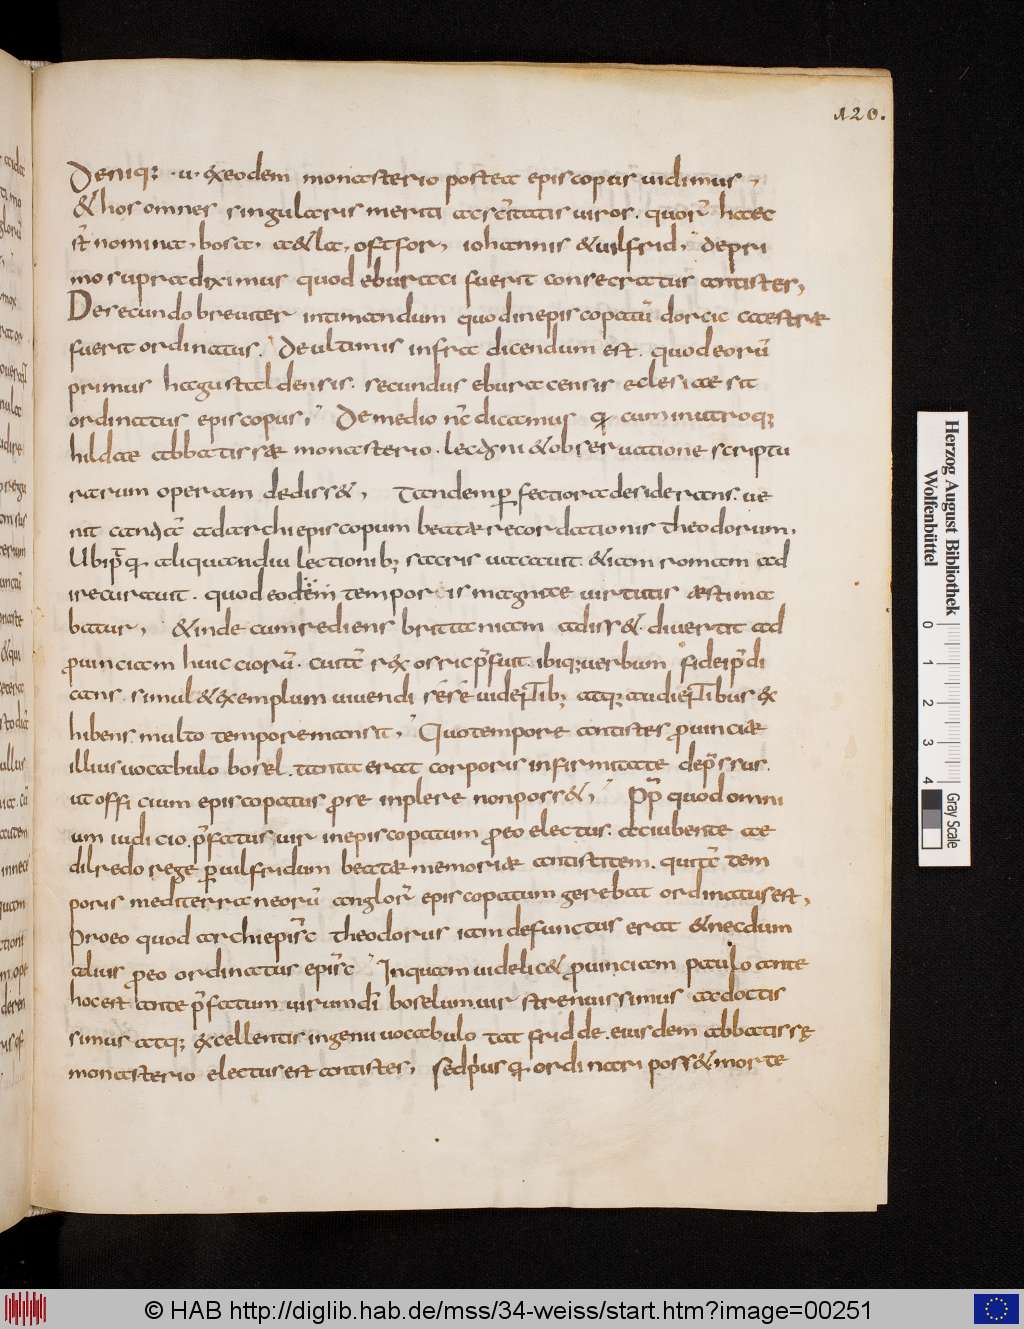 120.
Deniq; ·u· exeodem monasterio postea episcopus uidimus ,
& hos omnes singularis meriti acscītatis uiros. quorū haec
st̄ nomina, bosa, a&la, oftfor, iohannis &uilfrid, depri
mo supradiximus quod eburaci fuerit consecratus antistes,
Desecundo breuiter intimandum quodinepiscopatū dorcic caestrae
fuerit ordinatus. Deultimis infra dicendum est. quodeorū
primus hagustaldensis. secundus eburacensis eclesiae sit
ordinatus episcopus; Demedio nc̄ dicamus qd cuminutroq;
hildae abbatissae monasterio. lectioni &obseruatione scriptu
rarum operam dediss&, Tandemp̄fectiora desiderans. ue
nit cantiā adarchiepiscopum beatae recordationis theodorum,
Ubip̄qd aliquandiu lectionib; sacris uacauit. &iam romam ad
irecurauit. quod eodem tempore is magnae uirtutis aestima
batur, &inde cumrediens brittaniam adiss&. diuertit ad
prouinciam huicciorū. cuitc̄ rex osric p̄fuit. ibiq;uerbum fideip̄di
cans. simul&exemplum uiuendi sese uidentib; atq; audientibus ex
hibens. multo temporemansit, Quotempore antistes prouinciae
illiusuocabulo bosel. tanta erat corporis infirmitate dep̄ssus.
ut officium episcopatus prose inplere nonposs&; Pp̄ quod omni
um iudicio. p̄fatus uir inepiscopatum proeo electus. aciubente ae
dilredo rege p̄ uulfridum beatae memoriae antistitem. quitc̄ tem
poris mediterraneorū anglorū episcopatum gerebat ordinatusest,
Proeo quod archiepisc̄ theodorus iam defunctus erat &necdum
alius proeo ordinatus episc̄ Inquam uidelic& prouinciam paulo ante
hocest ante p̄fatum uirumdī boselum uir strenuissimus acdoctis
simus atq; excellentis ingenii uocabulo tatfridde. eiusdem abbatissę
monasterio electusest antistes, sedprius qd ordinari poss& morte
Herzog August Bibliothek
Wolfenbüttel
0 1 2 3 4
Gray Scale
© HAB http://diglib.hab.de/mss/34-weiss/start.htm?image=00251